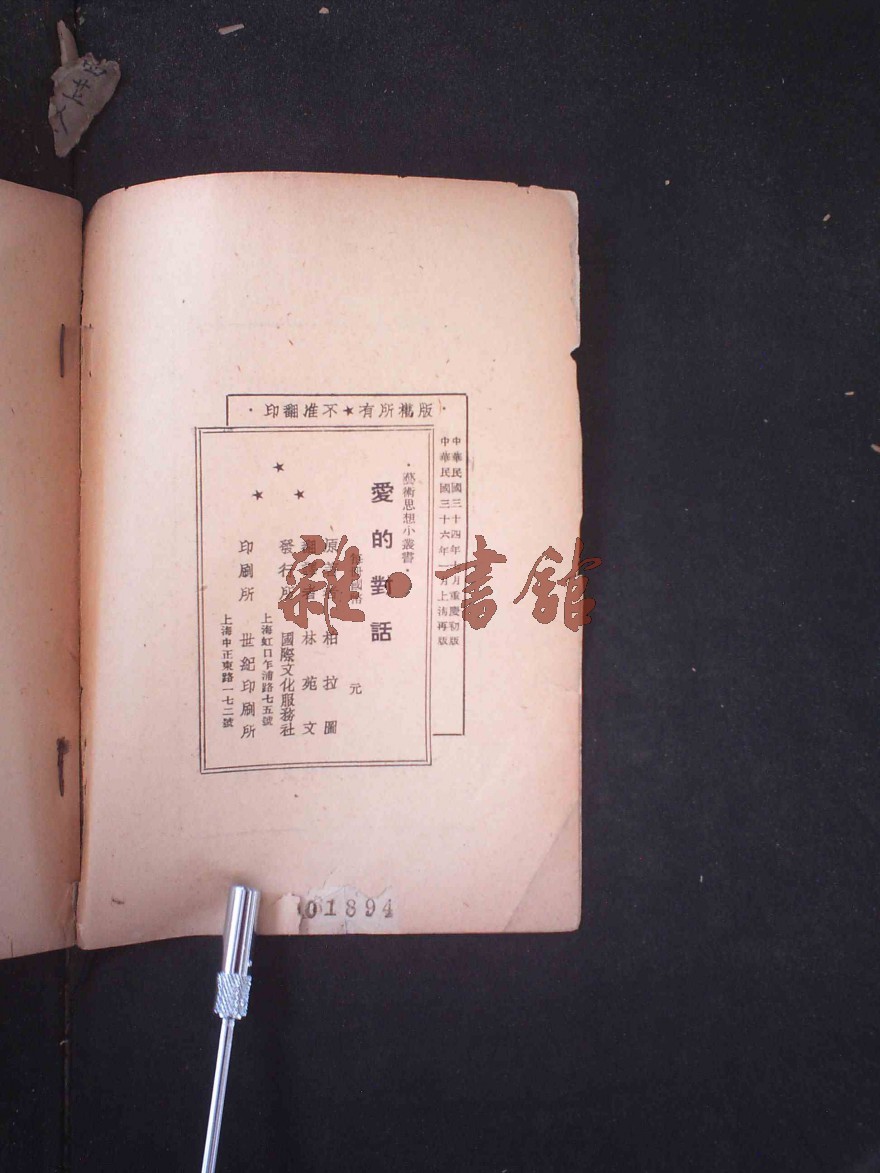 ·版權所有★不准翻印·
中華民國三十四年十月重慶初版
中華民國三十六年一月上海再版
·藝術思想小叢書·
愛的對話
元
原著者 柏拉圖
翻譯者 林苑文
發行所 國際文化服務社
上海虹口乍浦路七五號
印刷所 世紀印刷所
上海中正東路一七二號
01894
雜·書館